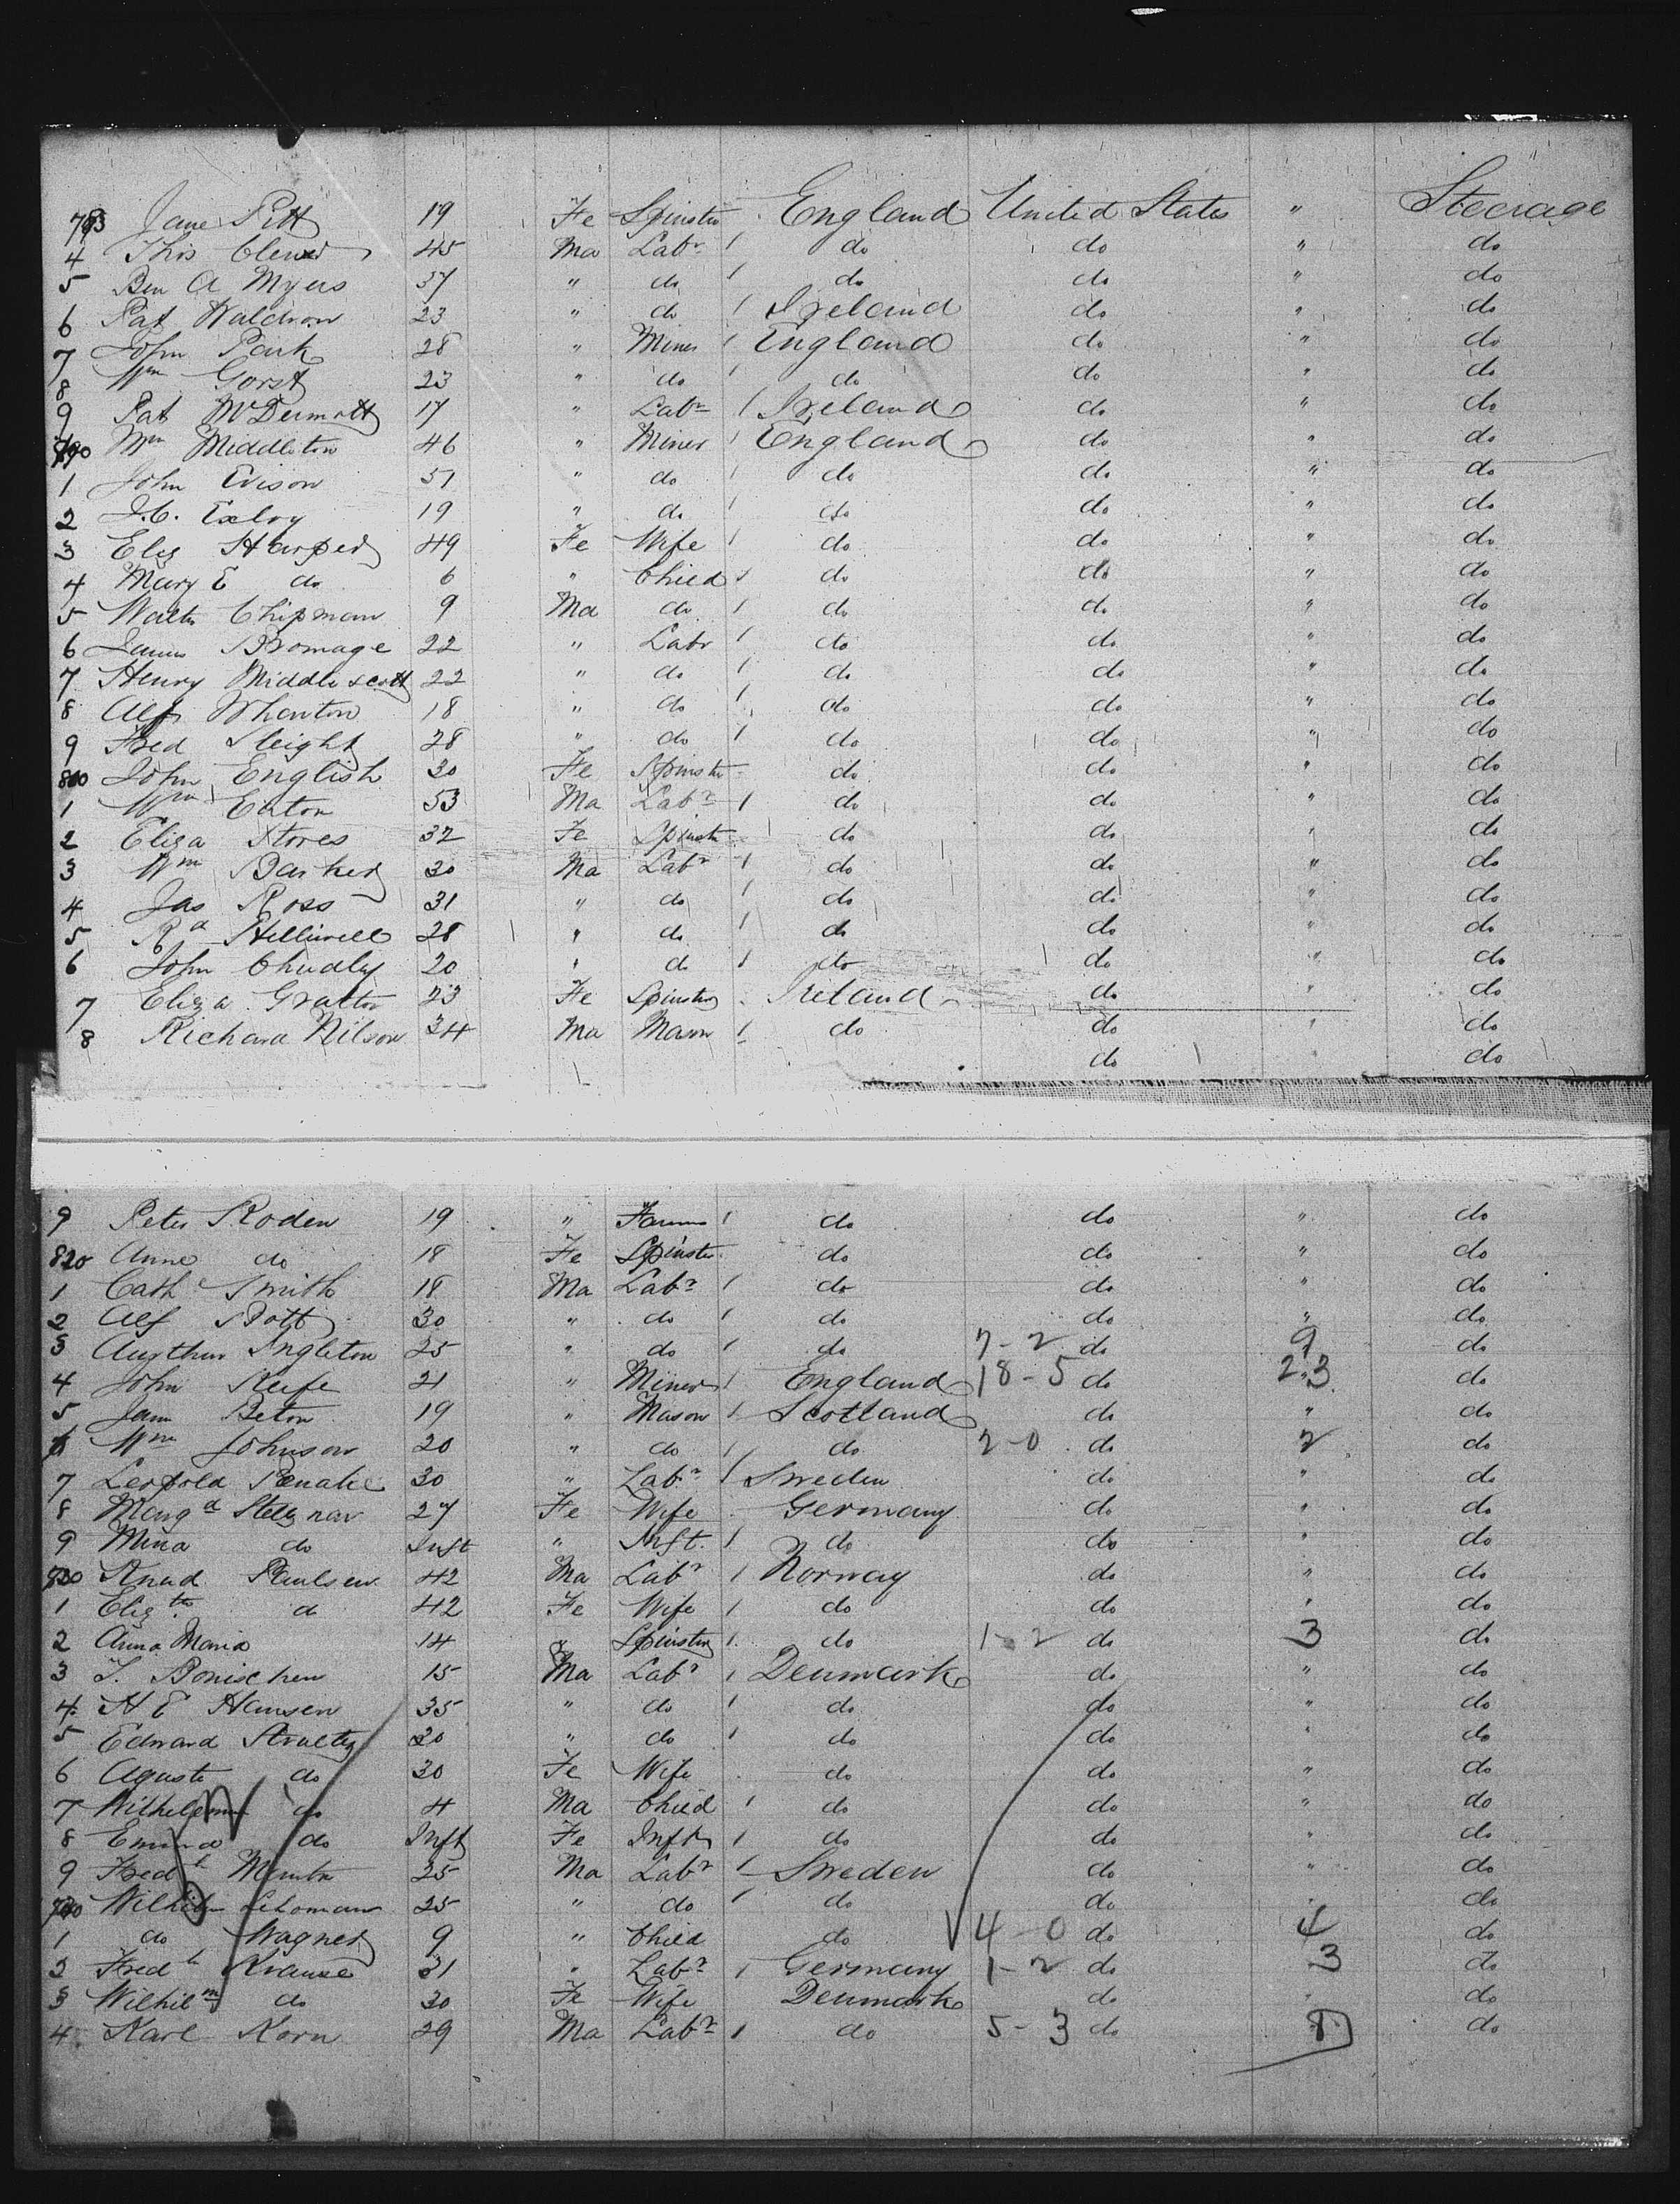 783 Jane Pitt 19 Fe Spinster England United States " Steerage
4 Thos 45 Ma Labr do do " do
5 Ben A Myers 37 " do do do " do
6 Pat Waldron 23 " do Ireland do " do
7 John Park 28 " Miner England do " do
8 Wm Gorst 23 " do do do " do
9 Pat McDermott 17 " Labr Ireland do " do
790 Wm Middleton 46 " Miner England do " do
1 John Evison 51 " do do do " do
2 J.C. Exley 19 " do do do " do
3 Eliz Harper 49 Fe Wife do do " do
4 Mary E do 6 " Child do do " do
5 Walter Chipman 9 Ma do do do " do
6 James Bromage 22 " Labr do do " do
7 Henry Middlescott 22 " do do do " do
8 Alf Wharton 18 " do do do " do
9 Fred Sleight 28 " do do do " do
800 John English 30 Fe Spinster do do " do
1 Wm Eaton 53 Ma Labr do do " do
2 Eliza Stores 32 Fe Spinster do do " do
3 Wm Barker 30 Ma Labr do do " do
4 Jas Ross 31 " do do do " do
5 Rd Helliwell 28 " do do do " do
6 John Chudley 20 " do do do " do
7 Eliza Gratton 23 Fe Spinster Ireland do " do
8 Richard Nilson 34 Ma Mason do do " do
do " do
9 Peter Roden 19 " Farmer do do " do
820 Anne do 18 Fe Spinster do do " do
1 Cath Smith 18 Ma Labr do do " do
2 Alf Bott 30 " do do do " do
3 Aurthur Ingleton 25 " do do 7-2 do 9 do
4 John Keefe 21 " Miner England 18-5 do 23 do
5 Jam Beton 19 " Mason Scotland do " do
6 Wm Johnson 20 " do do 2-0 do 2 do
7 Leopold 30 " Labr Sweden do " do
8 Margd 27 Fe Wife Germany do " do
9 Mina do Inft " Inft. do do " do
830 Knud Paulsen 42 Ma Labr Norway do " do
1 Elizth do 42 Fe Wife do do " do
2 Anna Maria 14 " Spinster do 1-2 do 3 do
3 J. Bonischen 15 Ma Labr Denmark do " do
4 H E Hansen 35 " do do do " do
5 Edward 20 " do do do " do
6 Aguste do 30 Fe Wife do do " do
7 do 4 Ma Child do do " do
8 Emma do Inft Fe Inft do do " do
9 Fredk 25 Ma Labr Sweden do " do
Lehoman 25 " do do do " do
1 do Wagner 9 " Child do 4-0 do 4 do
2 Fredk Krause 31 " Labr Germany 1-2 do 3 do
3 Wilhilm do 30 Fe Wife Denmark do " do
4 Karl Korn 29 Ma Labr do 5-3 do 8 do